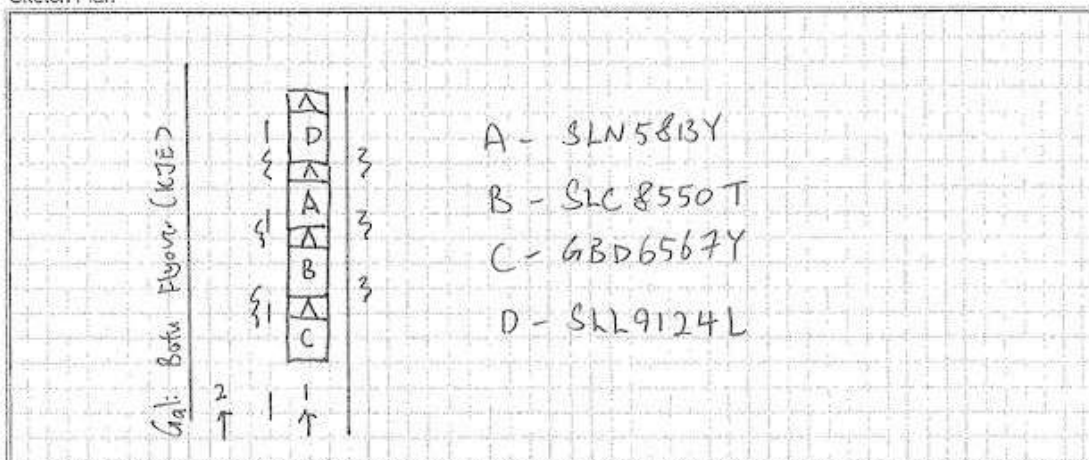 Gali Batu Flyover (KJE)
D
A
B
C
2
1
A - SLN5813Y
B - SLC8550T
C - GBD6567Y
D - SLL9124L